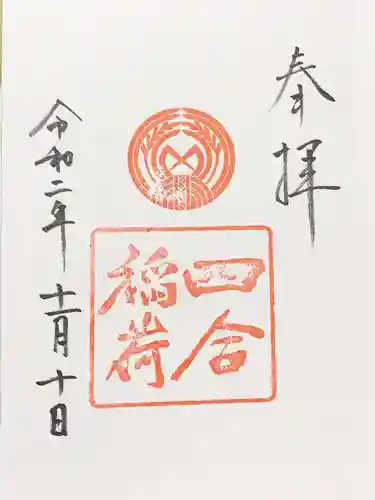 奉拝
四合
稲荷
令和二年 十一月 十日